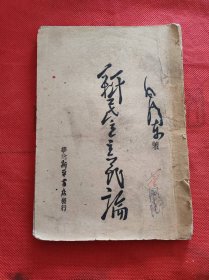 毛泽东 著
新民主主义論
華北新華書店發行